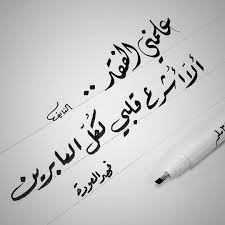 علمني الفقد ..
ألّا أُشرع قلبي لكُلّ العابرين
فهد العودة